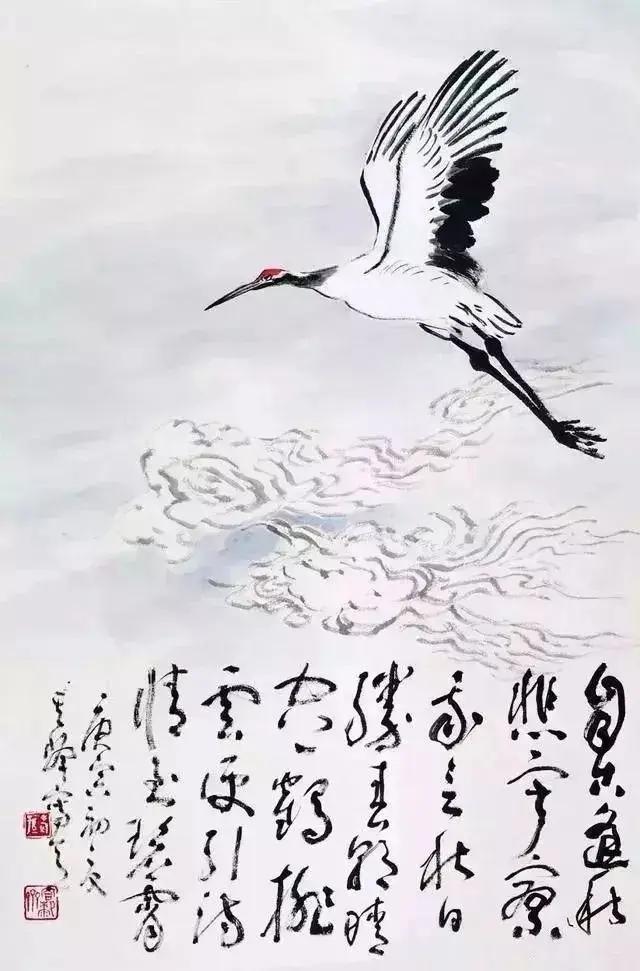 自古逢秋
悲寂寥
我言秋日
勝春朝晴
空一鶴排
雲便引詩
情到碧霄
庚寅初